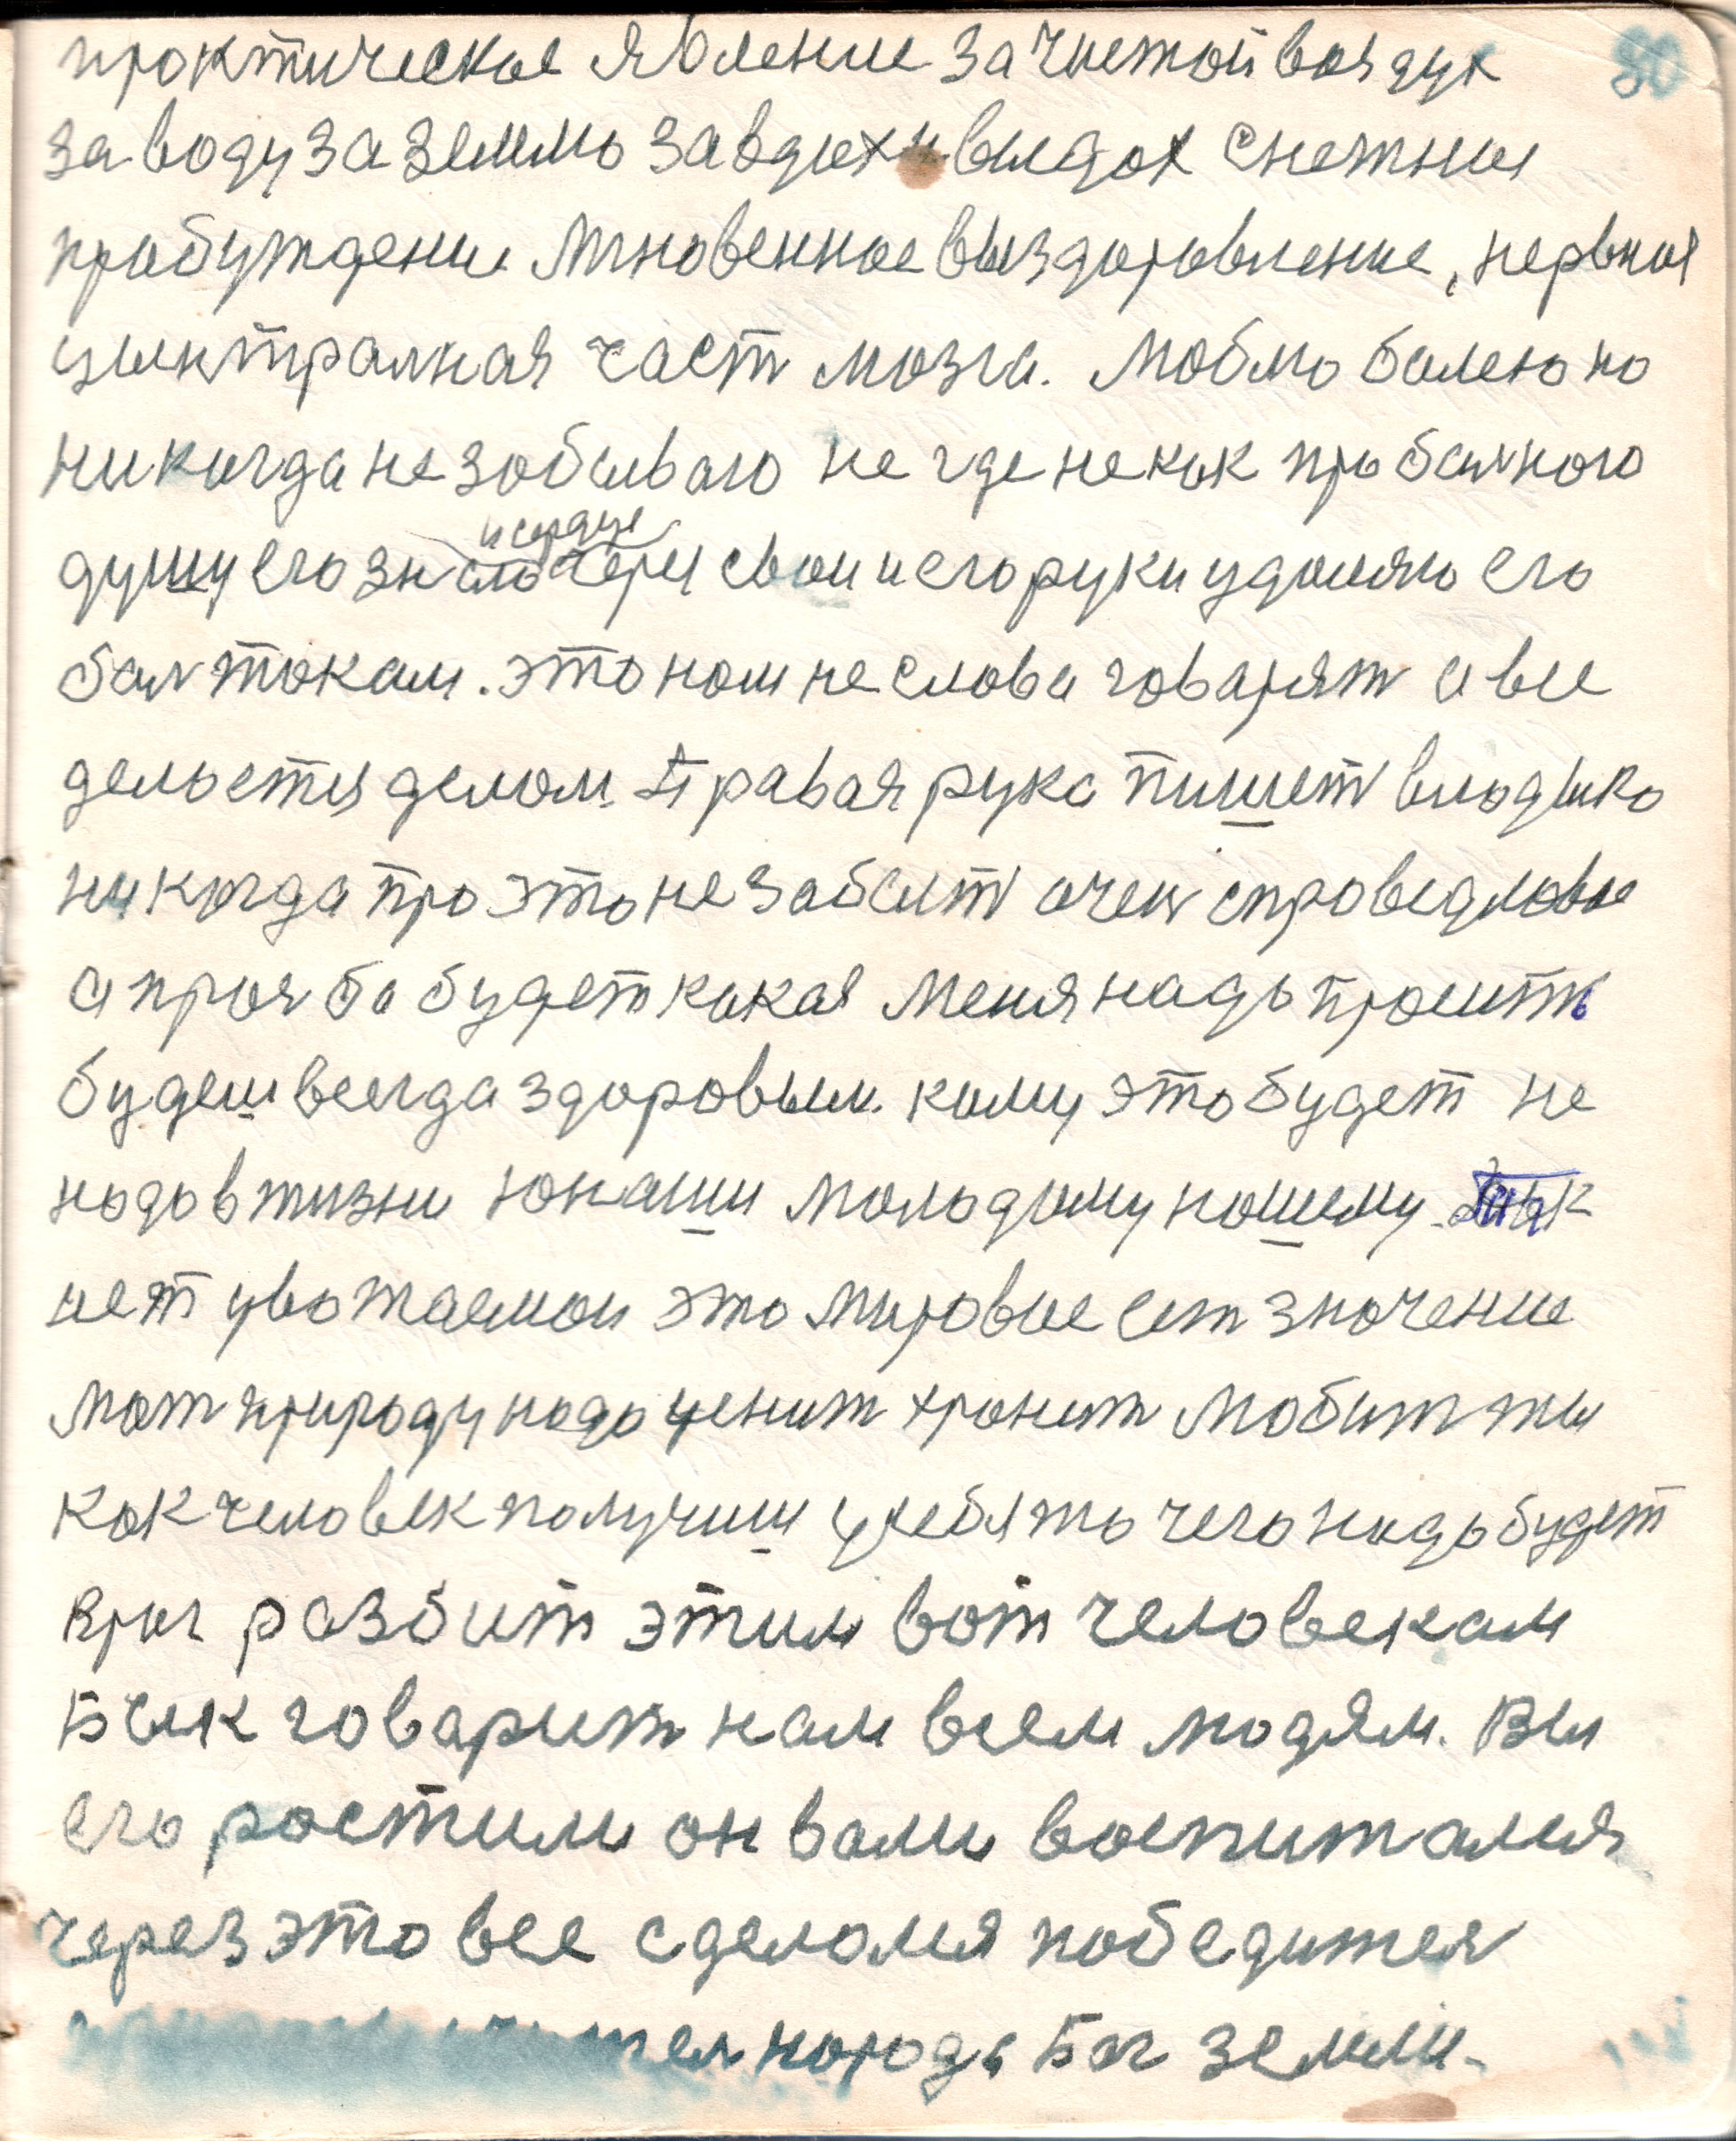 80
практическое явление за чистой воздух
за воду за землю за вдох и выдох снежные
пробуждение мгновенное выздоровление, нервная
цынтралная част мозга. Люблю болею но
никогда не зобываю не где не как про балного
душу его зн и сердце свои и его руки удоляю его
бал током. это нам не слова говарят а все
делоется делом. Правая рука пишет влодыко
никогда про это не забыт очен справедловое
а прозба будет какая меня надо просить
будеш всегда здоровым. кому это будет не
нодо в жизни юнаши молодому нашему.
нет уважаемои это мировое ест значение
мат природу нодо ценит хронит любит ты
как человек получиш учебято чего надо будет
враг разбит этим вот человекам
Бык говарит нам всем людям. Вы
его ростили он вами воспитался
через это все сделолся победител
народа Бог земли.